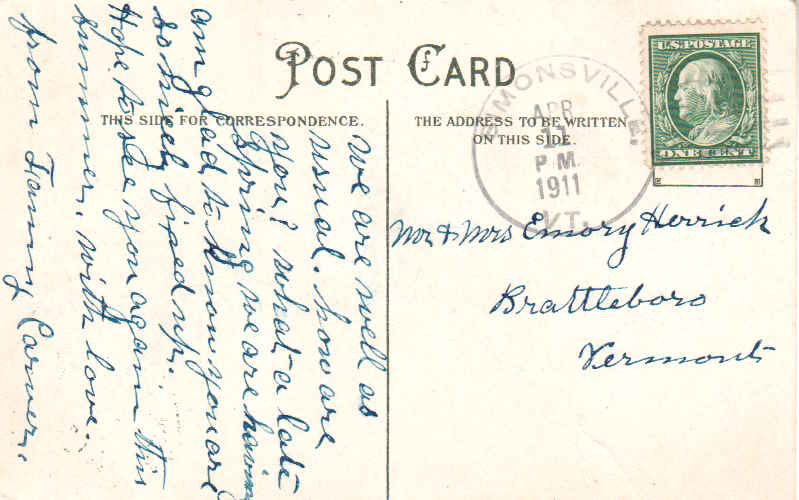 POST CARD
THIS SIDE FOR CORRESPONDENCE.
THE ADDRESS TO BE WRITTEN
ON THIS SIDE.
SIMONSVILLE,
APR
11
P M.
1911
VT.
U.S. POSTAGE
ONE CENT
We are well as
usual. how are
you? what a late
Spring we are having
am glad to know you are
so nicely fixed up.
Hope to see you again this
summer. with love.
from Fanny Carver.
Mr & Mrs Emory Herrick
Brattleboro
Vermont